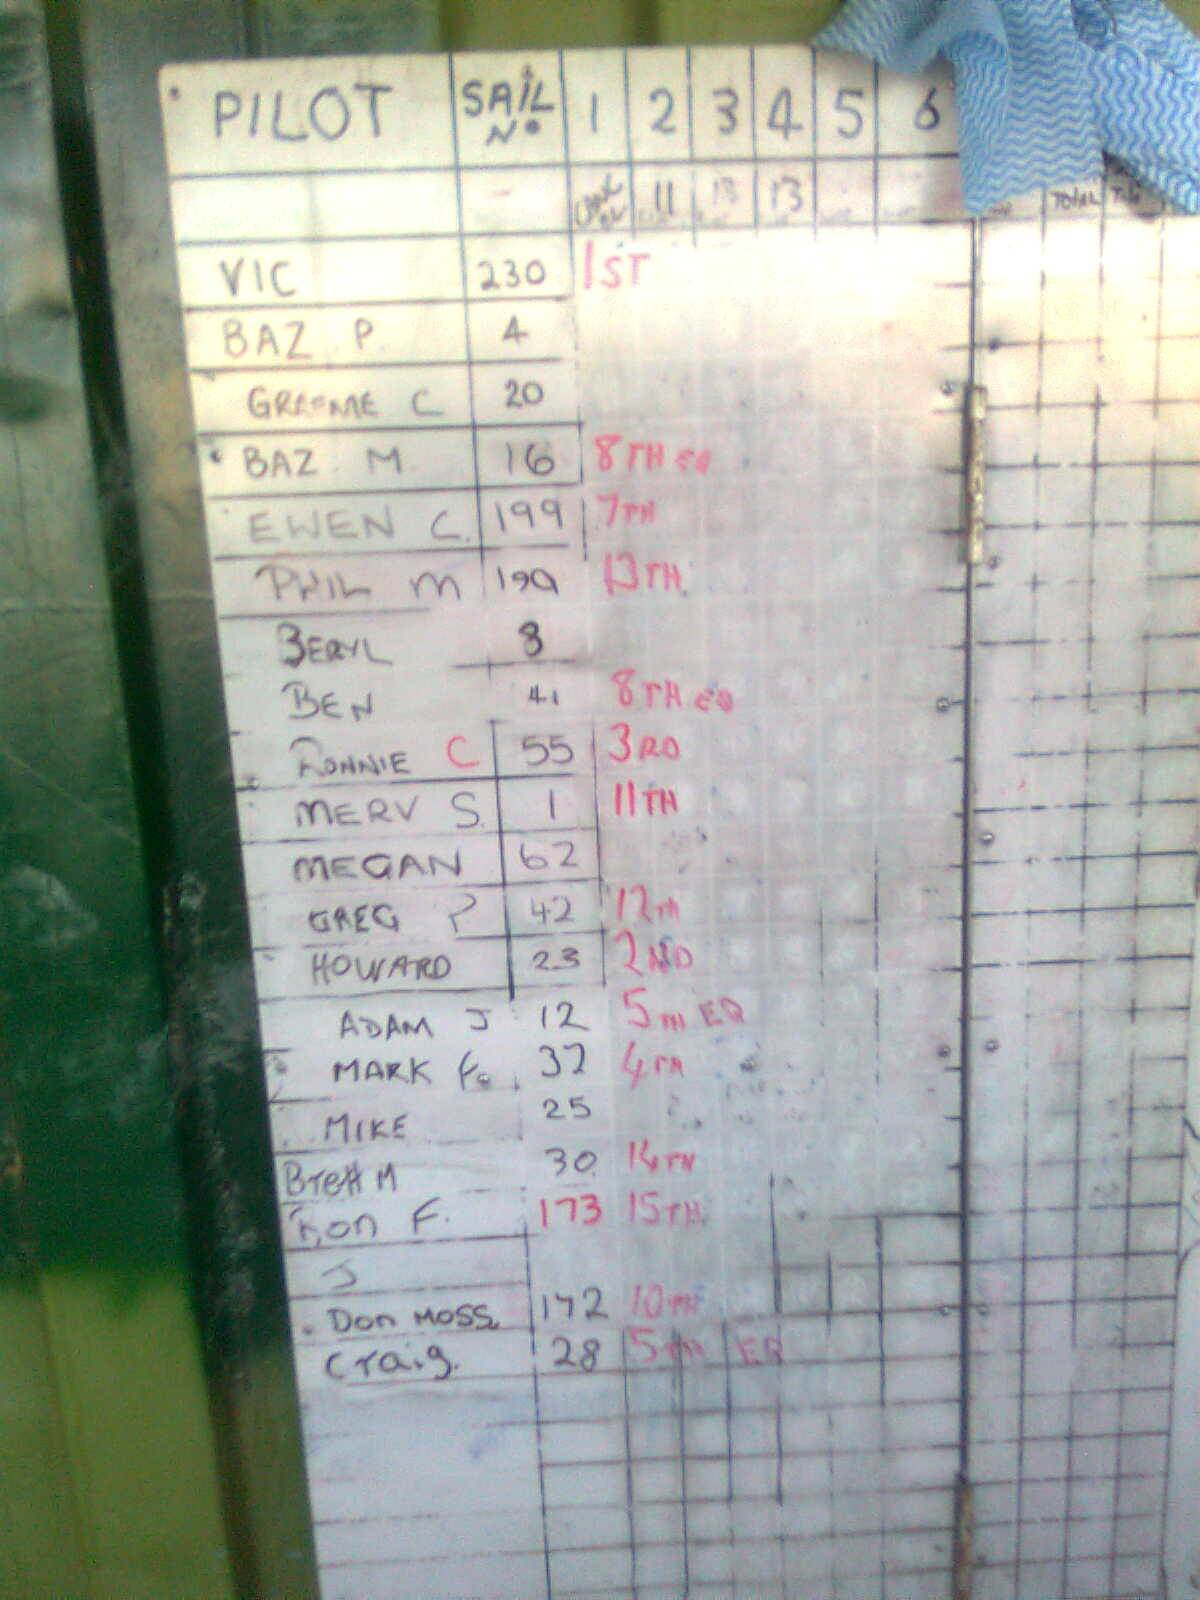 PILOT SAIL No 1 2 3 4 5 6
11 13 13 TOTAL
VIC 230 1ST
BAZ P. 4
GRAEME C 20
BAZ M 16 8TH EQ
EWEN C. 199 7TH
PHIL M 8 13TH.
BERYL 8
BEN 41 8TH EQ
RONNIE C 55 3RD
MERV S. 1 11TH
MEGAN 62
GREG P 42 12TH
HOWARD 23 2ND
ADAM J 12 5TH EQ
MARK F. 37 4TH
MIKE 25
Brett M 30 14TH
Ron F. 173 15TH.
J
Don MOSS 142 10TH
Craig. 28 5TH EQ